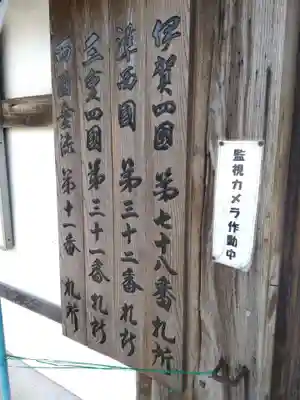 伊賀四國 第七十八番札所
準西國 第三十二番札所
三重四國 第三十一番札所
西國愛染 第十一番札所
監視カメラ作動中